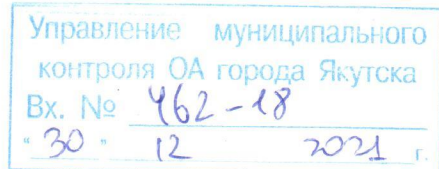 Управление муниципального
контроля ОА города Якутска
Вх. № 462-18
"30" 12 2021 г.